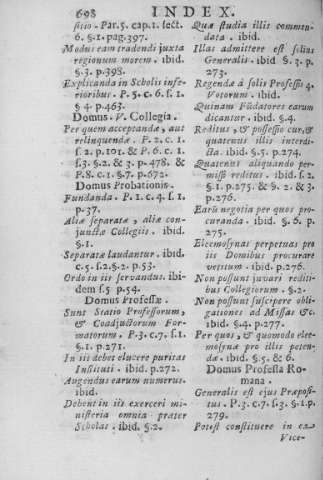 698 INDEX.
sitio. Par. 5. cap. 1. sect.
6. §. 1. pag. 397.
Modus eam tradendi juxta
regionum morem. ibid.
§. 3. p. 398.
Explicanda in Scholis infe-
rioribus. P. 5. c. 6. s. 1.
§ 4. p. 463.
Domus. V. Collegia.
Per quem acceptandæ, aut
relinquendæ. P. 2. c. 1.
s. 2. p. 101. & P. 6. c. 1.
s. 3. §. 2. & 3. p. 478. &
P. 8. c. 1. §. 7. p. 672.
Domus Probationis.
Fundanda. P. 1. c. 4. s. 1.
p. 37.
Aliæ separatæ, aliæ con-
junctæ Collegiis. ibid.
§. 1.
Separatæ laudantur. ibid.
c. 5. s. 2. §. 2. p. 53.
Ordo in iis servandus. ibi-
dem s. 5 p. 54.
Domus Professæ.
Sunt Statio Professorum,
& Coadjutorum For-
matorum. P. 3. c. 7. s. 1.
§. 1. p. 271.
In iis debet elucere puritas
Instituti. ibid. p. 272.
Augendus earum numerus.
ibid.
Debent in iis exerceri mi-
nisteria omnia præter
Scholas. ibid. §. 2.
Quæ studia illis commen-
data. ibid.
Illas admittere est solius
Generalis. ibid §. 3. p.
273.
Regendæ à solis Professis 4.
Votorum. ibid.
Quinam Fūdatores earum
dicantur. ibid. §. 4.
Reditus, & possessio cur, &
quatenus illis interdi-
cta. ibid. §. 5. p. 274.
Quatenus aliquando per-
missi reditus. ibid. s. 2.
§. 1. p. 275. & §. 2. & 3.
p. 276.
Earū negotia per quos pro-
curanda. ibid. §. 6. p.
275.
Eleemosynas perpetuas pro
iis Domibus procurare
vetitum. ibid. p. 276.
Non possunt juvari rediti-
bus Collegiorum. §. 2.
Non possunt suscipere obli-
gationes ad Missas &c.
ibid. §. 4. p. 277.
Per quos, & quomodo elee-
mosynæ pro illis peten-
dæ. ibid. §. 5. & 6.
Domus Professa Ro-
mana.
Generalis est ejus Præposi-
tus. P. 3. c. 7. s. 3. §. 1. p.
279.
Potest constituere in ea
Vice-